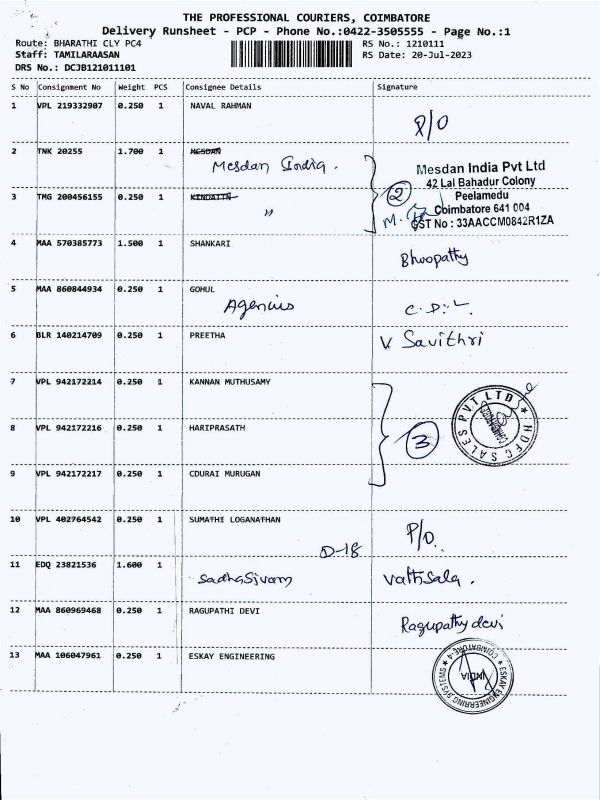 THE PROFESSIONAL COURIERS, COIMBATORE
Delivery Runsheet - PCP - Phone No.:0422-3505555 - Page No.:1
Route: BHARATHI CLY PC4 RS No.: 1210111
Staff: TAMILARAASAN RS Date: 20-Jul-2023
DRS No.: DCJB121011101
S No Consignment No Weight PCS Consignee Details Signature
1 VPL 219332907 0.250 1 NAVAL RAHMAN
P/O
2 TNK 20255 1.700 1 MESDAN
Mesdan India.
Mesdan India Pvt Ltd
42 Lal Bahadur Colony
3 TMG 200456155 0.250 1 2 Peelamedu
" Coimbatore 641 004
GST No : 33AACCM0842R1ZA
4 MAA 570385773 1.500 1 SHANKARI
Bhoopathy
5 MAA 860844934 0.250 1 GOHUL
Agencies
6 BLR 140214709 0.250 1 PREETHA V Savithri
7 VPL 942172214 0.250 1 KANNAN MUTHUSAMY
HDFC SALES PVT LTD
8 VPL 942172216 0.250 1 HARIPRASATH 3
9 VPL 942172217 0.250 1 CDURAI MURUGAN
10 VPL 402764542 0.250 1 SUMATHI LOGANATHAN
P/O.
D-18
11 EDQ 23821536 1.600 1
SadhaSivam Vathsala.
12 MAA 860969468 0.250 1 RAGUPATHI DEVI
Ragupathy devi
13 MAA 106047961 0.250 1 ESKAY ENGINEERING
ESKAY ENGINEERING SYSTEMS
COIMBATORE-4
INDIA